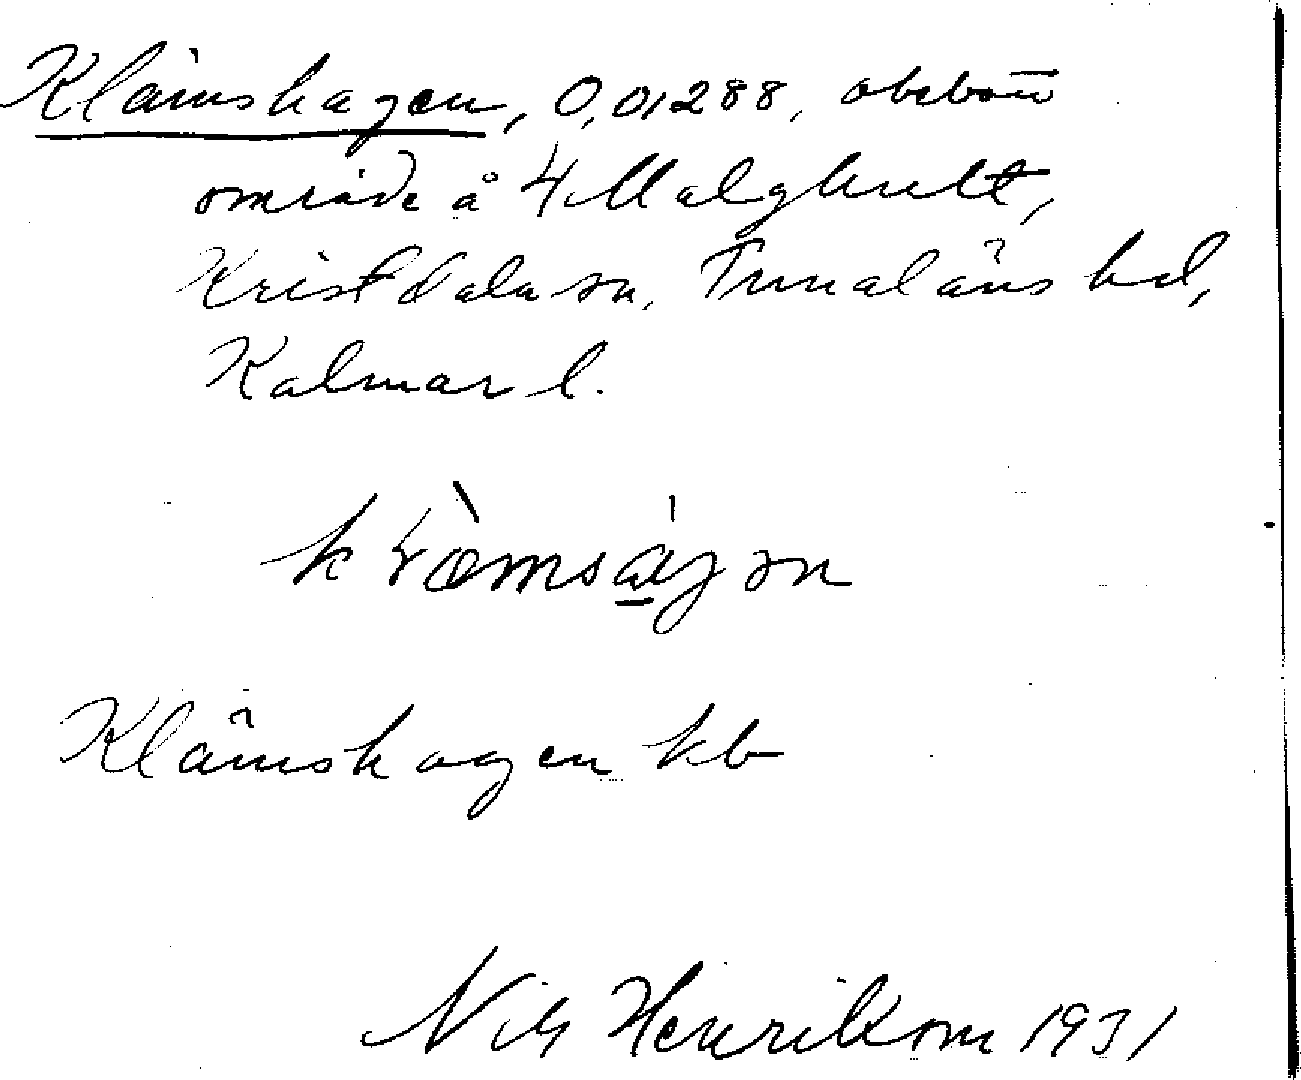 Klämshagen, 0,01288, obebott
område å 4 Malghult,
Kristdala sn, Tunaläns hd,
Kalmar l.
Klämshagen kb
Nils Henrikson 1931